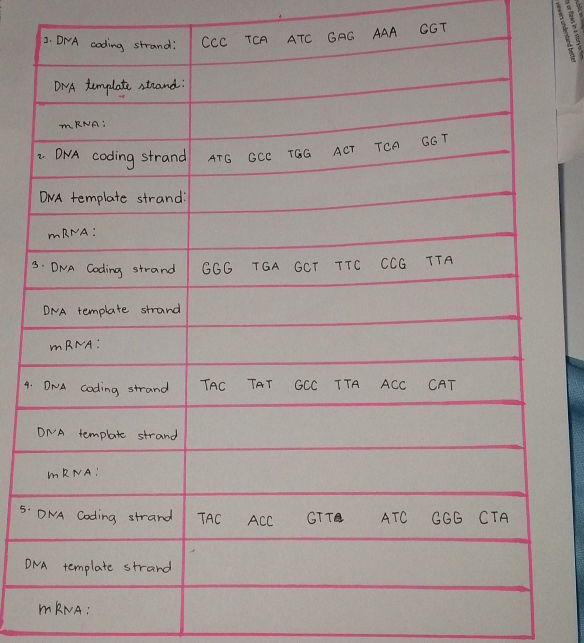 1. DNA coding strand: CCC TCA ATC GAG AAA GGT
DNA template strand:
mRNA:
2. DNA coding strand ATG GCC TGG ACT TCA GGT
DNA template strand:
mRNA:
3. DNA Coding strand GGG TGA GCT TTC CCG TTA
DNA template strand
mRNA:
4. DNA coding strand TAC TAT GCC TTA ACC CAT
DNA template strand
mRNA:
5. DNA Coding strand TAC ACC GTT ATC GGG CTA
DNA template strand
mRNA: